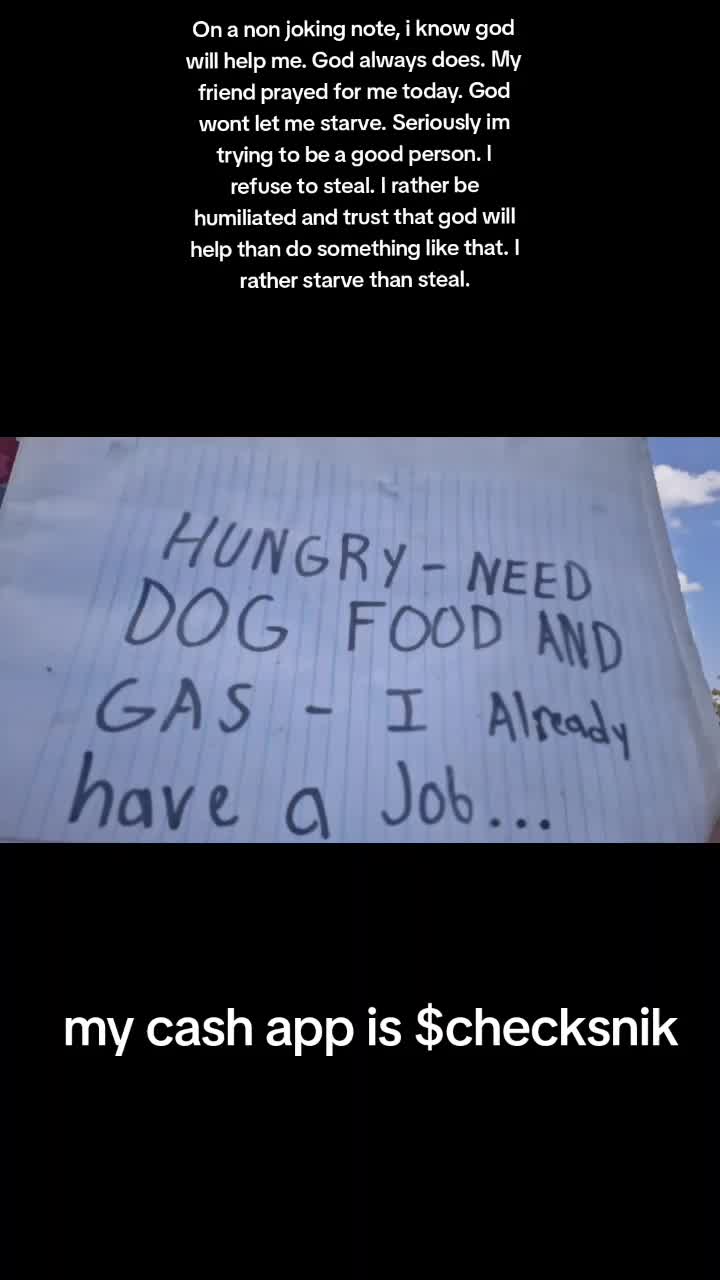 On a non joking note, i know god
will help me. God always does. My
friend prayed for me today. God
wont let me starve. Seriously im
trying to be a good person. I
refuse to steal. I rather be
humiliated and trust that god will
help than do something like that. I
rather starve than steal.
HUNGRY - NEED
DOG FOOD AND
GAS - I Already
have a Job...
my cash app is $checksnik